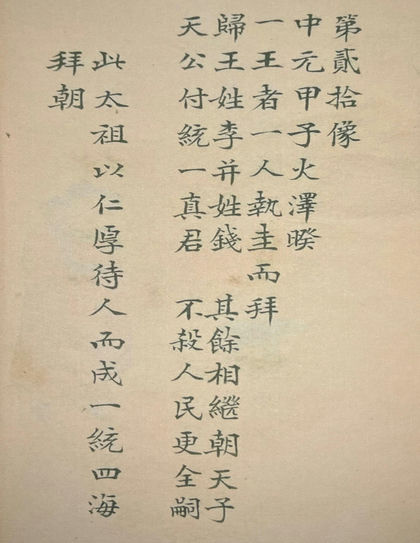 第貳拾像
中元甲子火澤暌
一王者一人執圭而拜
歸王姓李并姓錢　其餘相繼朝天子
天公付統一真君　不殺人民更全嗣
此太祖以仁厚待人而成一統四海
拜朝